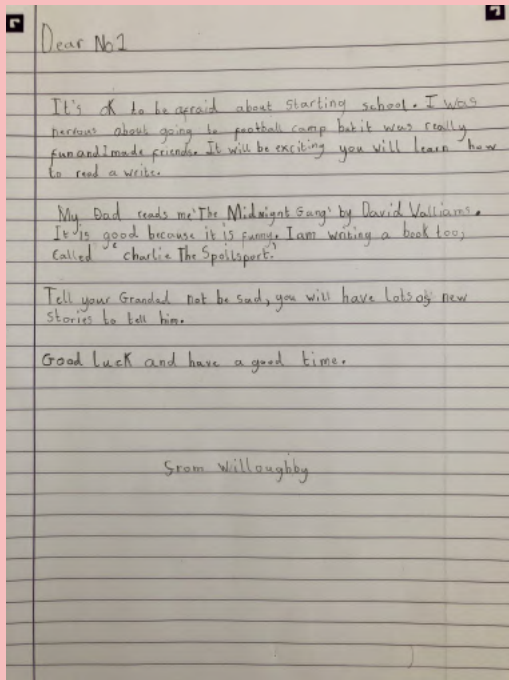 Dear No1
It's OK to be afraid about starting school. I was
nervous about going to football camp but it was really
fun and I made friends. It will be exciting you will learn how
to read a write.
My Dad reads me 'The Midnight Gang' by David Walliams.
It is good because it is funny. I am writing a book too,
called "charlie The Spollsport.'
Tell your Grandad not be sad, you will have lots of new
stories to tell him.
Good luck and have a good time.
From Willoughby